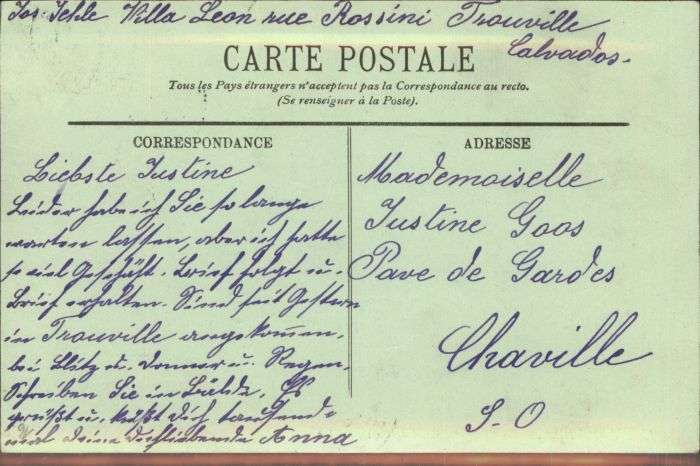 Jos. Jehle Villa Leon rue Rossini Trouville
Calvados.
CARTE POSTALE
Tous les Pays étrangers n'acceptent pas la Correspondance au recto.
(Se renseigner à la Poste).
CORRESPONDANCE
Liebste Justine
Leider habe ich Sie so lange
warten lassen, aber ich hatte
so viel Geschäft. Brief folgt u.
Brief erhalten. Sind seit Gestern
in Trouville angekommen.
bei Blitz u. Donner u. Regen.
Schreiben Sie in Bälde. Es
grüßt u. küßt Dich tausend
mal deine Dichliebende Anna
ADRESSE
Mademoiselle
Justine Goos
Pave de Gardes
Chaville
S-O